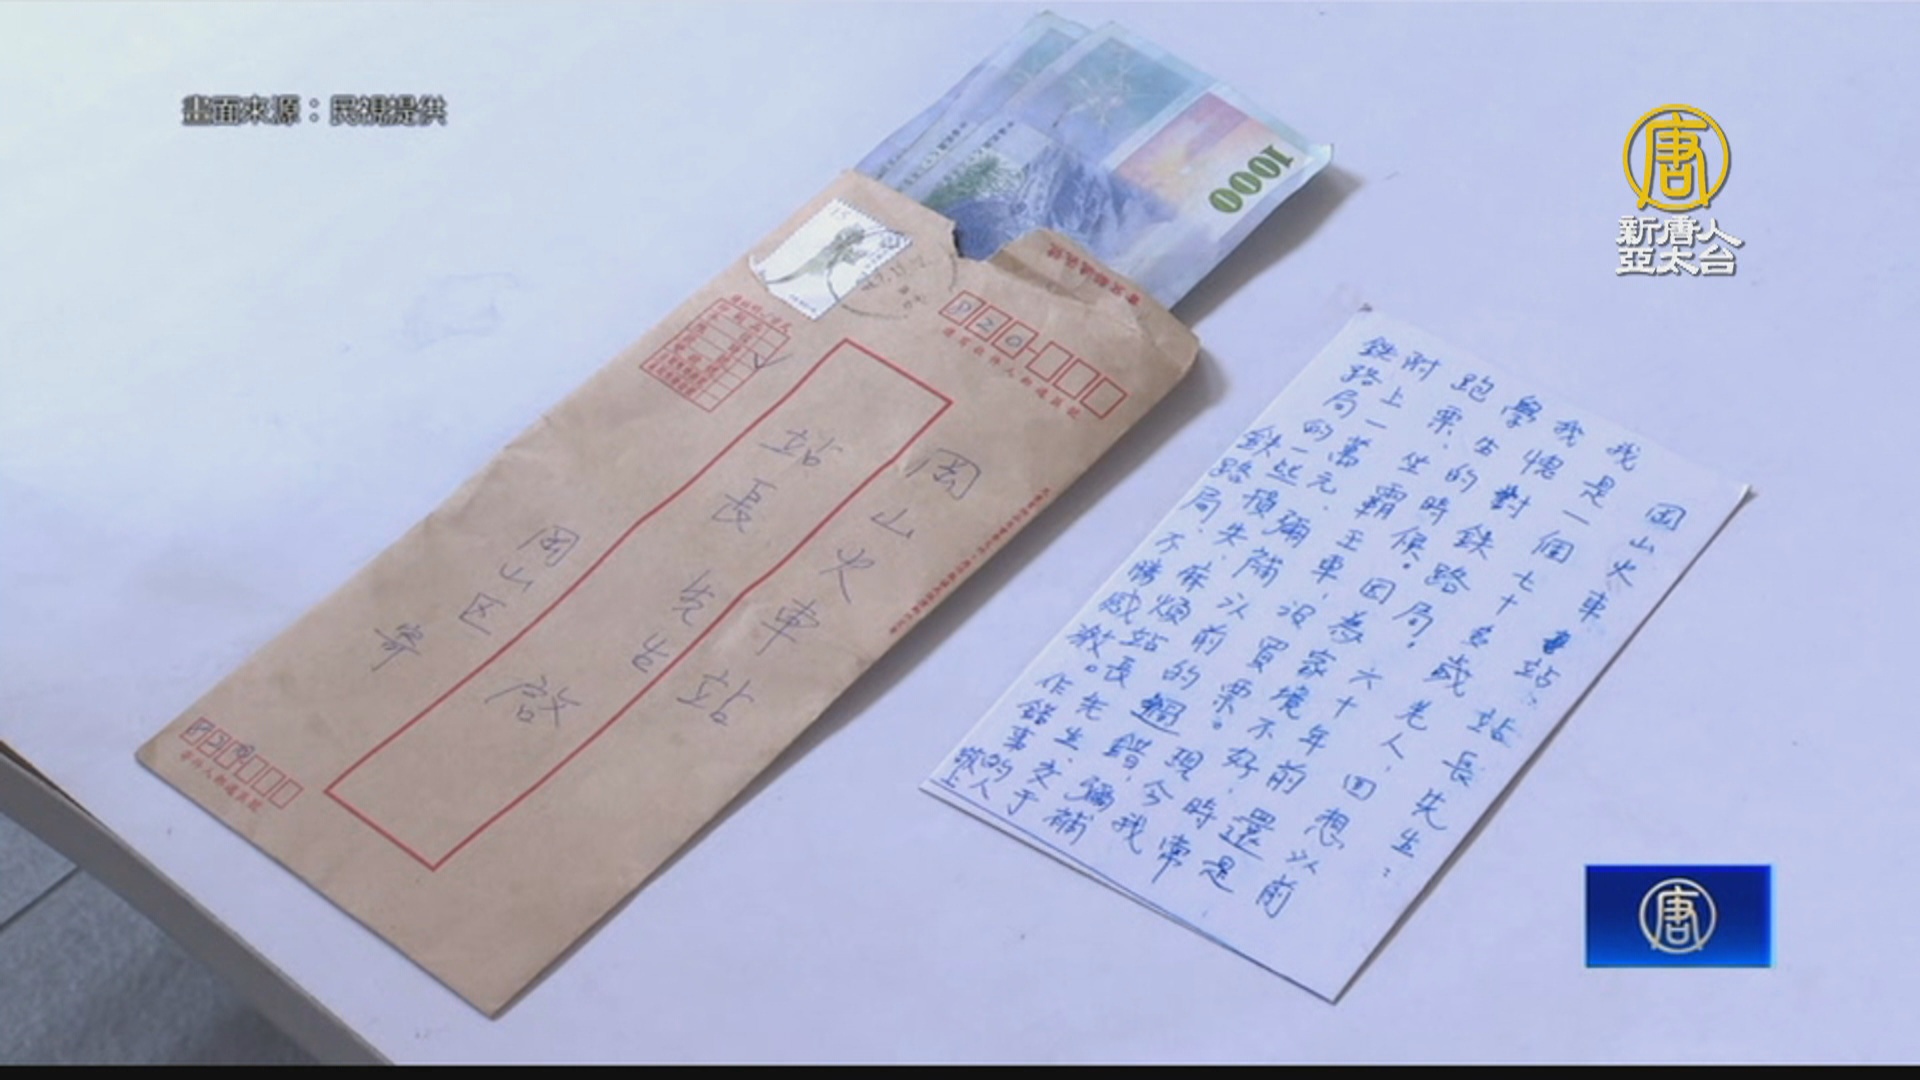 畫面來源：民視提供
新唐人
亞太台
1000
820
岡山火車站
站長先生 啟
岡山区 寄
岡山火車站站長先生：
我是一個七十多歲老人，回想以前
我愧對鉄路局，因為六十年前還是
學生的時候。家境不好，時常
跑票，坐霸王車，沒買票。現今我
附上一萬元，彌補以前的過錯，彌補
鉄路局的一些損失，麻煩站長先生，交于
鉄路局，不勝感激。作錯事的人
敬上